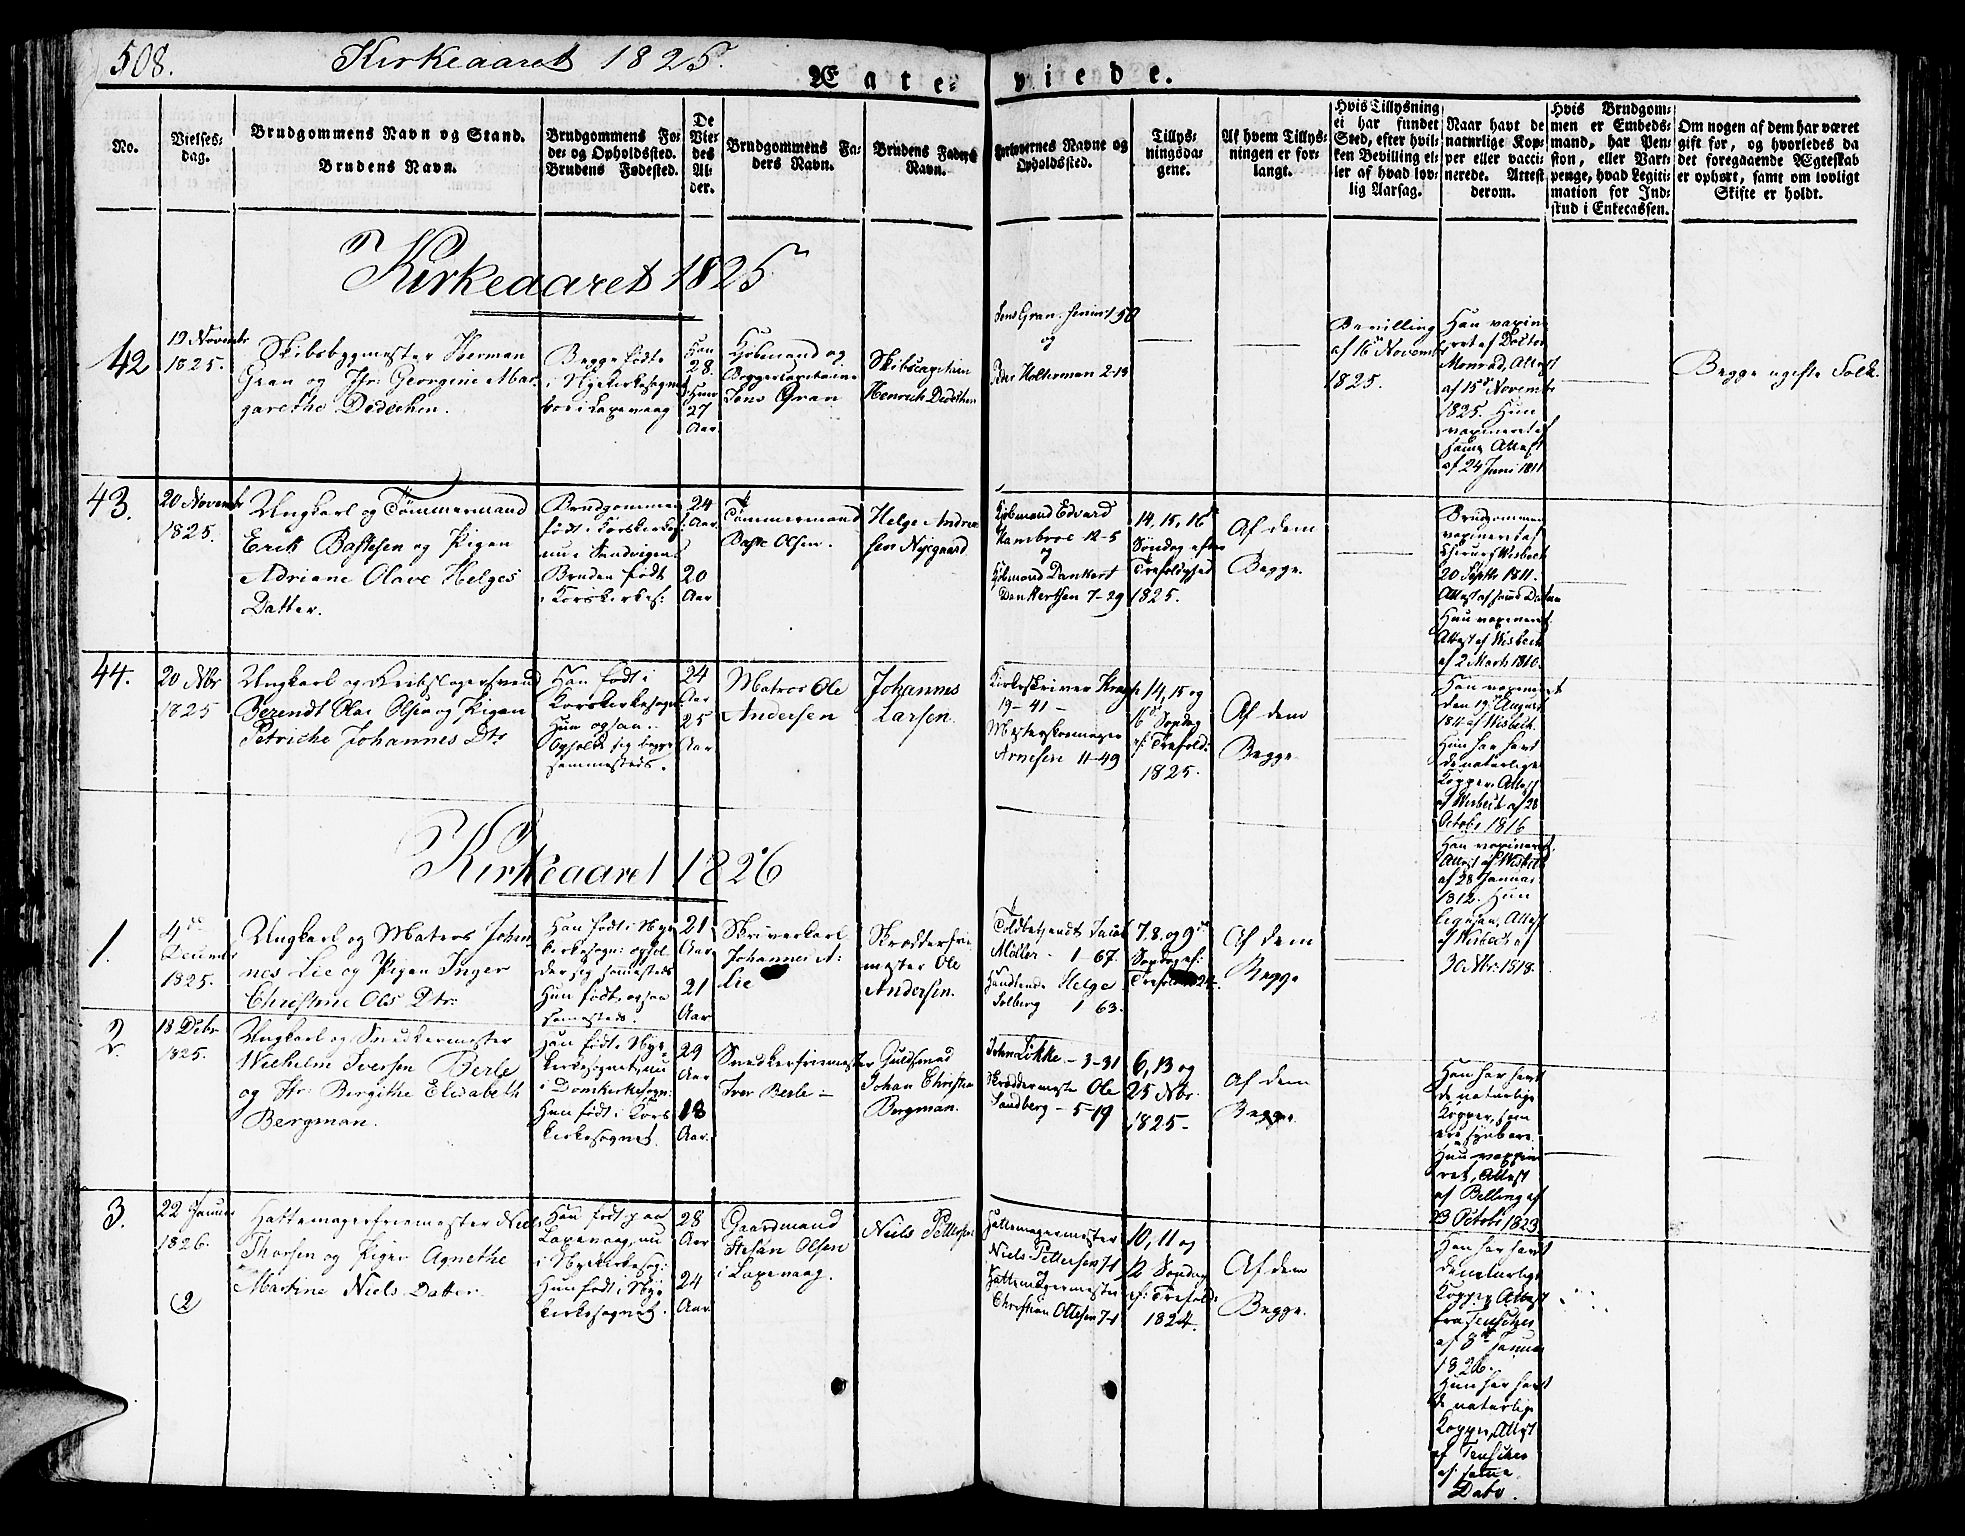 508.
Kirkeaaret 1825.
Ægte-viede.
No.
Vielses-
dag.
Brudgommens Navn og Stand.
Brudens Navn.
Brudgommens Fø-
de- og Opholdssted.
Brudens Fødested.
De
Vie-
des
Al-
der.
Brudgommens Fa-
ders Navn.
Brudens Faders
Navn.
Forlovernes Navne og
Opholdssted.
Tillys-
ningsda-
gene.
Af hvem Tillys-
ningen er for-
langt.
Hvis Tillysning
ei har fundet
Sted, efter hvil-
ken Bevilling el-
ler af hvad lov-
lig Aarsag.
Naar havt de
naturlige Kop-
per eller vacci-
nerede. Attest
derom.
Hvis Brudgom-
men er Embeds-
mand, har Pen-
sion, eller Vart-
penge, hvad Legiti-
mation for Ind-
skud i Enkecassen.
Om nogen af dem har været
gift før, og hvorledes da
det foregaaende Ægteskab
er ophørt, samt om lovligt
Skifte er holdt.
Kirkeaaret 1825
42
19 Novembr
1825.
Skibsbygmester Herman
Gran og Jfr: Georgine Mar-
garethe Dedechen.
Begge fødte
i Nyekirkesognet
boe i Laxevaag
Han
28.
Hun
27
Aar
Kjøbmand og
Borgercapitaine
Jens Gran
Skibscapitain
Henrich Dedechen
Jens Gran senior 1 50
og
Peder Holterman 2-19
Bevilling
af 16de Novembr
1825.
Han vaxine-
ret af Doctor
Monrad, Attest
af 15de Novembr
1825. Hun
vaxineret af
samme Attest
af 24 Juni 1811
Begge ugifte Folk.
43.
20 Novembr
1825.
Ungkarl og Tømmermand
Erik Bastesen og Pigen
Adriane Olave Helges
Datter.
Brudgommen
født i Korskirkes:
nu i Sandvigen
Bruden født
i Korskirkes:
24
Aar
20
Aar
Tømmermand
Baste Olsen.
Helge Andrea-
sen Nygaard
Kjøbmand Edvard
Hambroe 12-5
og
Kjøbmand Dankert
Dankertsen 7-29
14, 15, 16de
Søndag efter
Trefoldighed
1825.
Af dem
Begge.
Brudgommen
vaxineret af
Chirurg Wisbech
20 Septbr 1811.
Attest af samme Datum
Hun vaxineret
Attest af Wisbech
af 2 Marts 1810.
44.
20 Nbr
1825
Ungkarl og Rebslagersvend
Berendt Olai Olsen og Pigen
Petriche Johannes Dtr
Han født i
Korskirkesogn:
Hun ogsaa.
Opholdt sig begge
sammesteds.
24
Aar
25
Aar
Matros Ole
Andersen
Johannes
Larsen.
Kirkeskriver
19-41-
Mesterskomager
Arnesen 11-49
14, 15 og
16de Søndag
ef: Trefold:
1825.
Af dem
Begge.
Han vaxineret
den 19 August
af Wisbech.
Hun har havt
de naturlige
Kopper, Attest
af Wisbech af 28
Octobr 1816
Kirkeaaret 1826
1.
4de
Decembr
1825.
Ungkarl og Matros Johan-
nes Lie og Pigen Inger
Christine Ols Dtr.
Han født i Nye
kirkesogn: ophol-
der sig sammesteds
Hun født, ogsaa
sammesteds.
21
Aar
21
Aar
Skriverkarl
Johannes A.
Lie
Skrædderfri-
mester Ole
Andersen.
Toldbetjendt Jacob
Møller - 1 67.
Handlende Helge
Solberg 1 63.
7. 8. og 9de
Søndag ef:
Trefold: 1824.
Af dem
Begge
Han vaxineret.
Attest af Wisbech
af 28 Januar
1812. Hun
ligesaa, Attest
af Wisbech af
30 Nbr: 1818.
2.
18 Decbr
1825.
Ungkarl og Snedkermester
Wilhelm Iversen Berle
og Jfr: Birgithe Elisabeth
Bergman.
Han født i Nye-
kirkesognet, nu
i Domkirkesogn:
Hun født i Kors
kirkesognet.
29
Aar
18
Aar.
Snedkerfrimester
Iver Berle -
Guldsmed
Johan Christian
Bergman.
John Løkke - 3-31
Skræddermester Ole
Sandberg - 5-19
6, 13 og
25 Nbr.
1825-
Af dem
Begge.
Han har havt
de naturlige
Kopper, som
ere synbare.
Hun vaxine-
ret, Attest
af Belling af
23 Octobr 1823
3.
22 Januar
1826.
(2)
Hattemagerfriemester Niels
Thorsen og Pigen Agnethe
Martine Niels Datter.
Han født paa
Laxevaag, nu
i Nyekirkesog:
Hun født i Nye
kirkesognet.
28
Aar
24
Aar.
Gaardmand
Stefan Olsen
i Laxevaag.
Niels Pettersen
Hattemagermester
Niels Pettersen 7-1
og
Hattemagermester
Christian Ottesen 7-1
10, 11 og
12 Søndag
ef: Trefold:
1824.
Af dem
Begge.
Han har havt
de naturlige
Kopper, Attest
fra
af 3de Januar
1826.
Hun har havt
de naturlige
Kopper, Attest
af
af samme
Dato.